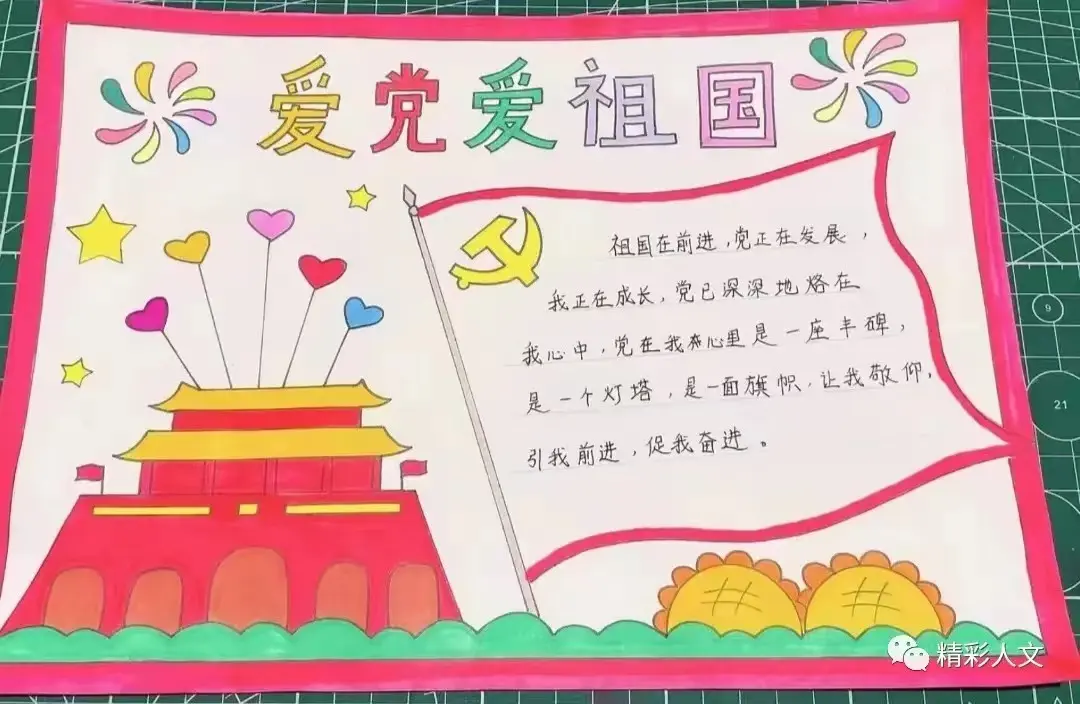 爱党爱祖国
祖国在前进,党正在发展,
我正在成长,党已深深地烙在
我心中,党在我心里是一座丰碑,
是一个灯塔,是一面旗帜,让我敬仰,
引我前进,促我奋进。
9
21
精彩人文